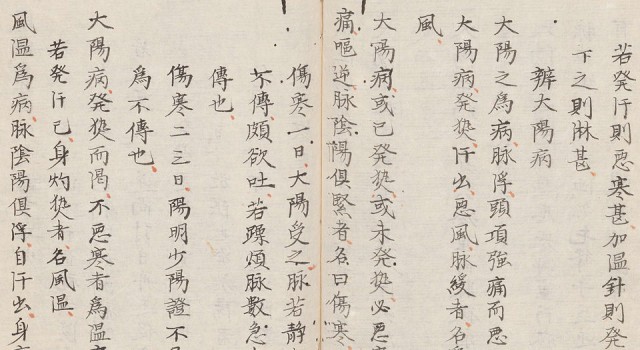 若発汗則悪寒甚加温針則発
下之則淋甚
辨大陽病
大陽之爲病脉浮頭項強痛而悪
大陽病発熱汗出悪風脉緩者名
風
大陽病或已発熱或未発熱必悪
痛嘔逆脉陰陽俱緊者名曰傷寒
傷寒一日大陽受之脉若静
不傳頗欲吐若躁煩脉數急
傳也
傷寒二三日陽明少陽證不
爲不傳也
大陽病発熱而渇不悪寒者爲温
若発汗已身灼熱者名風温
風温爲病脉陰陽俱浮自汗出身